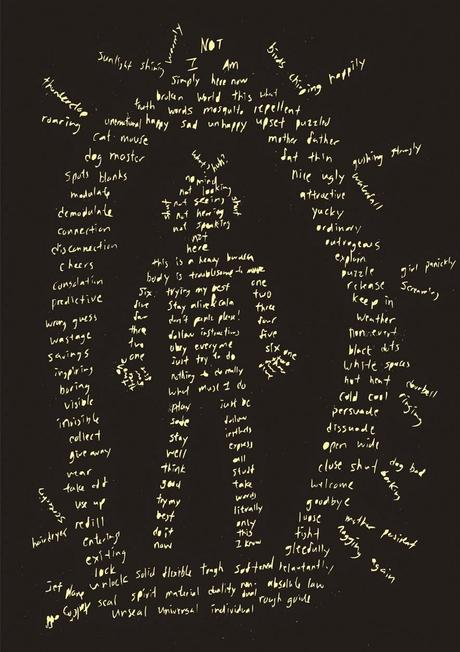 NOT
I Am
simply here now
broken world this what
truth words mosquito repellent
unusual happy sad unhappy upset puzzled
sunlight shining warmly
birds chirping happily
thunderclap
roaring
cat mouse
dog master
spots blanks
modulate
demodulate
connection
disconnection
cheers
consolation
predictive
wrong guess
wastage
savings
inspiring
boring
visible
invisible
collect
give away
wear
take off
use up
refill
entering
exiting
lock
unlock
hairdryer
mother father
fat thin
nice ugly
attractive
yucky
ordinary
outrageous
explain
puzzle
release
keep in
weather
non-event
black dots
white spaces
hot heat
cold cool
persuade
dissuade
open wide
close shut
welcome
goodbye
loose
fight
gleefully
gushing strongly
waterfall
girl panickly
screaming
doorbell
ringing
dog bad
barking
mother persistent
nagging
again
no mind
not looking
not seeing
not hearing
not speaking
not
here
this is a heavy burden
body is troublesome to move
trying my best
stay alive
don't panic please!
follow instructions
obey everyone
just try to do
nothing to do really
what must I do
six
five
four
three
two
one
one
two
three
four
five
six
play
safe
stay
well
think
good
try my
best
do it
now
just be
follow
instincts
express
all
stuff
take
words
literally
only
this
I know
solid flexible tough softened reluctantly
jet plane
seal spirit material duality non-dual absolute law
unseal universal individual rough guide